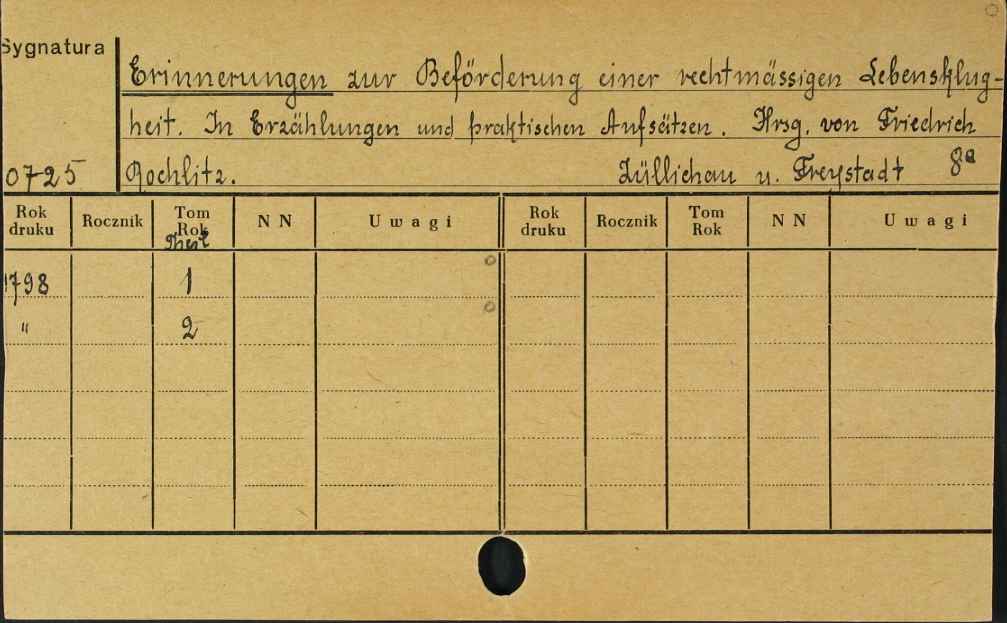 Sygnatura
Erinnerungen zur Beförderung einer rechtmässigen Lebensklug-
heit. In Erzählungen und praktischen Aufsätzen. Hrsg. von Friedrich
0725 Rochlitz. Züllichau u. Freystadt 8°
Rok druku Rocznik Tom Rok Theil NN Uwagi Rok druku Rocznik Tom Rok NN Uwagi
1798 1
" 2